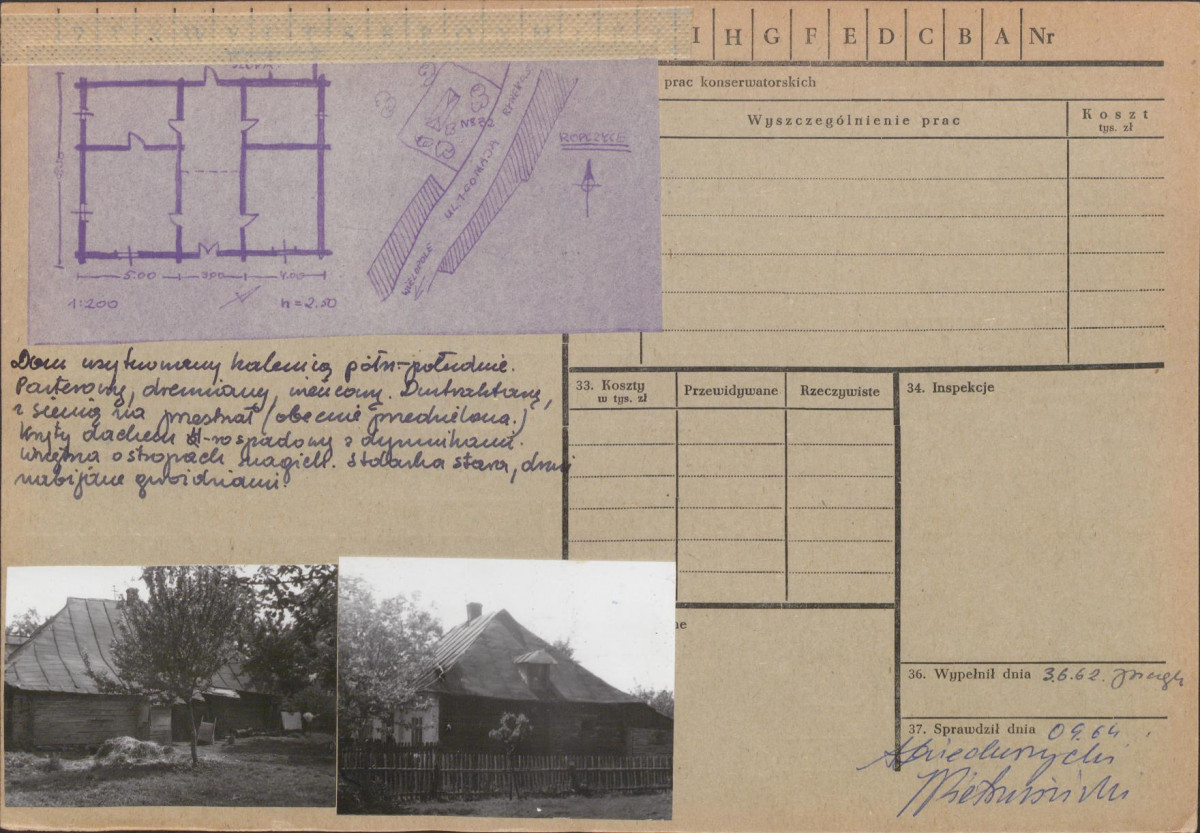 I H G F E D C B A Nr
prac konserwatorskich
Wyszczególnienie prac
Koszt
tys. zł
ROPCZYCE
UL. 1-GO MAJA
WIELOPOLE
5.00 3.00 4.00
1:200
h=2.50
Dom usytuowany kalenicą półn-południe.
Parterowy, drewniany, wieńcowy. Dwutraktowy,
z sienią na przestrzał (obecnie przedzieloną.)
Kryty dachem 4-rospadowy z dymnikami.
Wnętrza o stropach nagich. Stolarka stara, drzwi
nabijane gwoździami.
33. Koszty
w tys. zł
Przewidywane
Rzeczywiste
34. Inspekcje
ne
36. Wypełnił dnia 3.6.62.
37. Sprawdził dnia 09.64